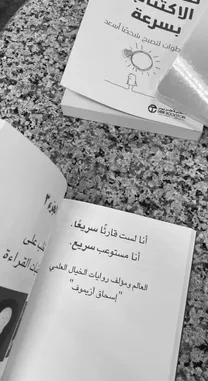 الاكتئاب
بسرعة
طوات لتصبح شخصًا أسعد
أنا لست قارئًا سريعًا.
أنا مستوعب سريع.
العالم ومؤلف روايات الخيال العلمي
"إسحاق أزيموف"
على
القراءة